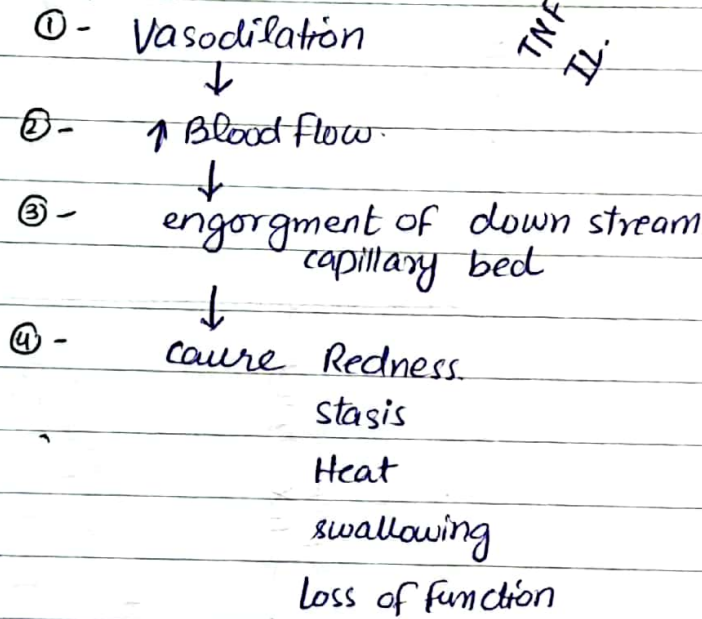 ① - Vasodilation
TNF
IL.
↓
② - ↑ Blood flow.
↓
③ - engorgment of down stream
capillary bed
↓
④ - caure Redness.
stasis
Heat
swallowing
Loss of function